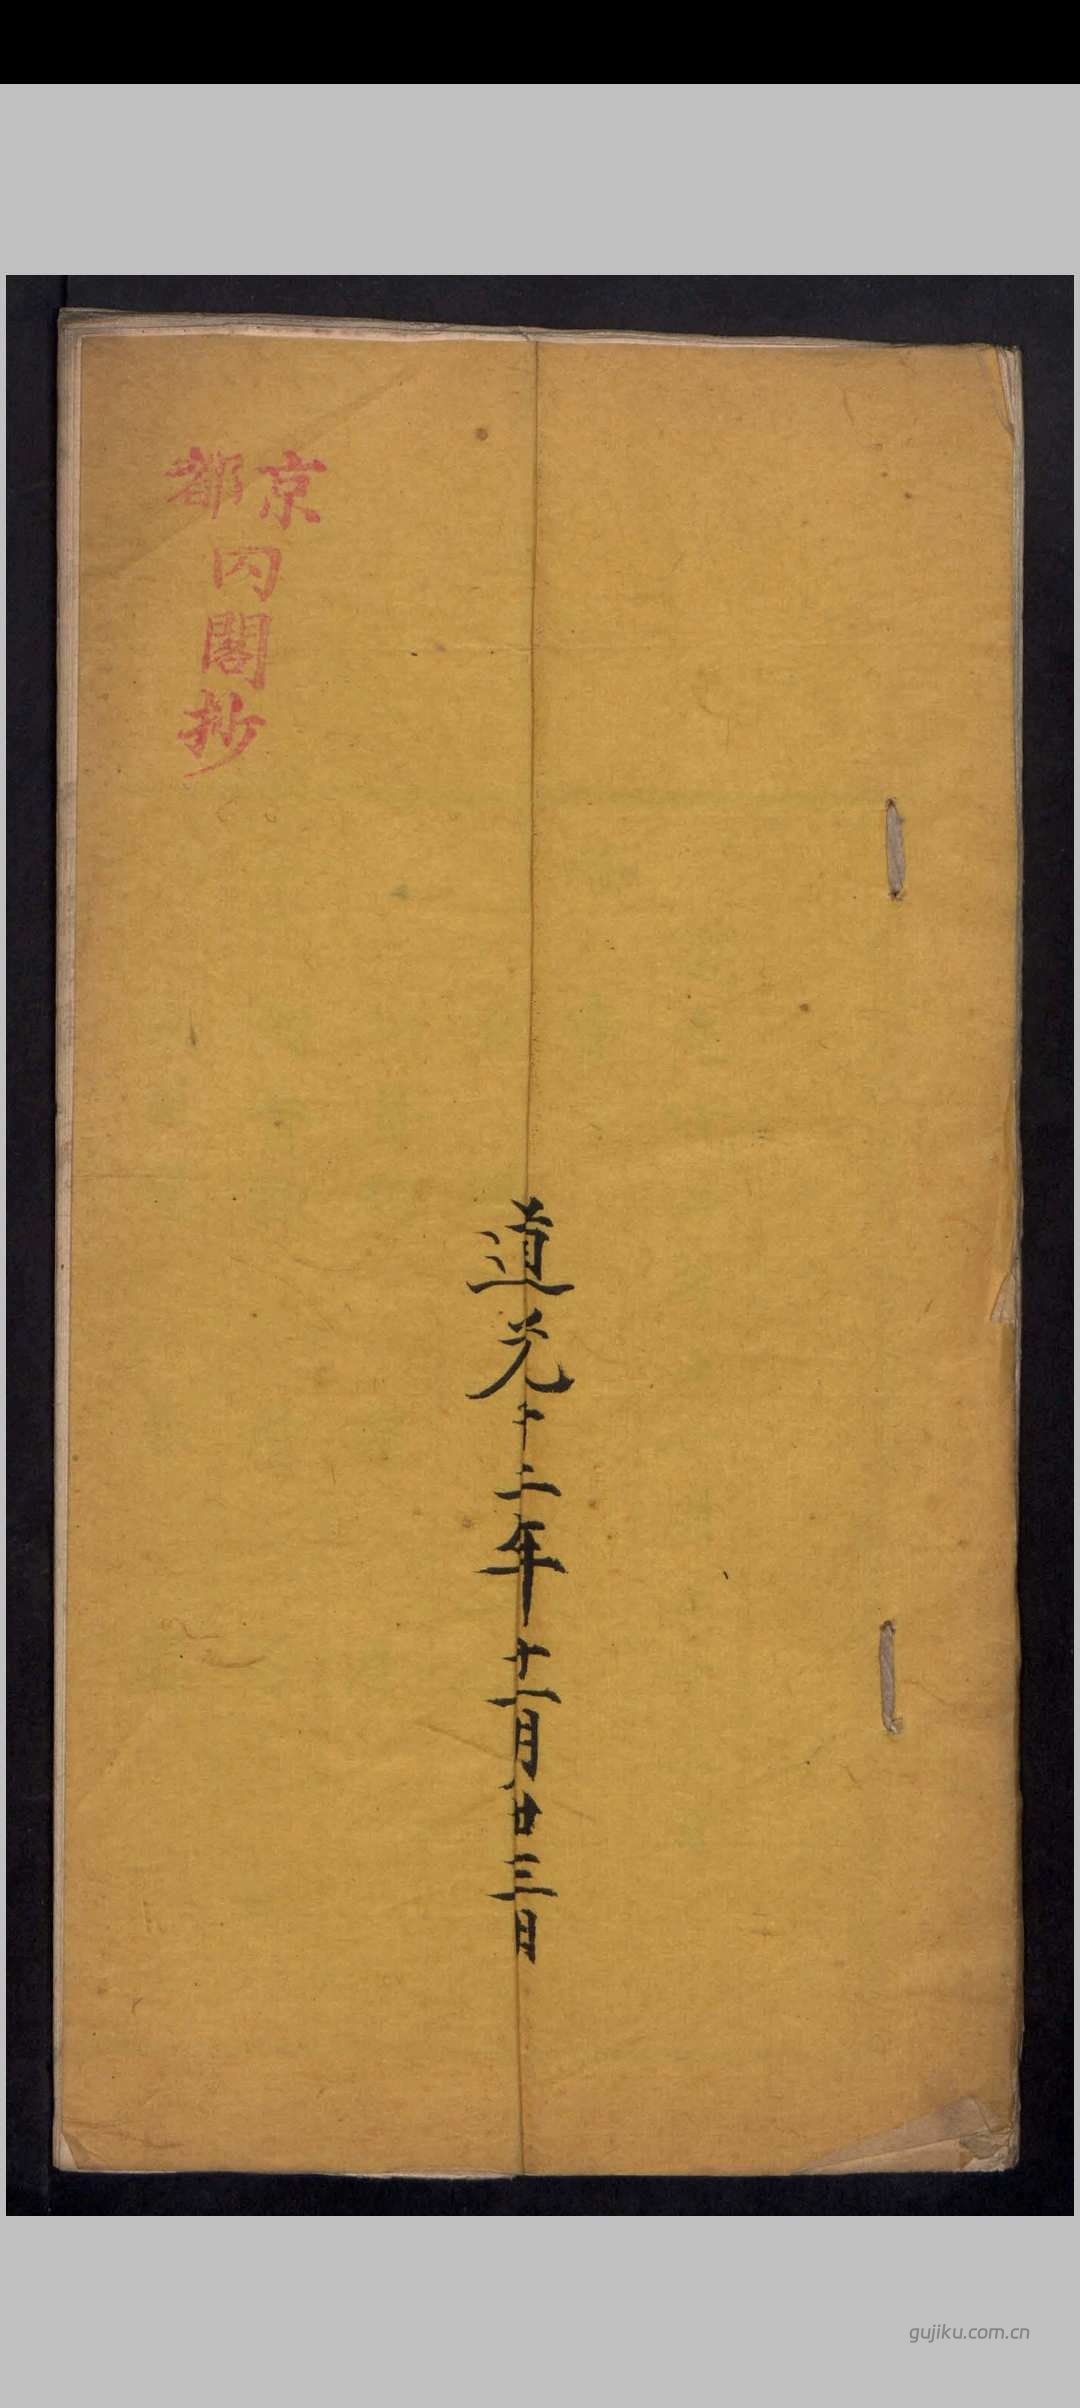 京都
内閣抄
道光十二年十一月廿三日
gujiku.com.cn